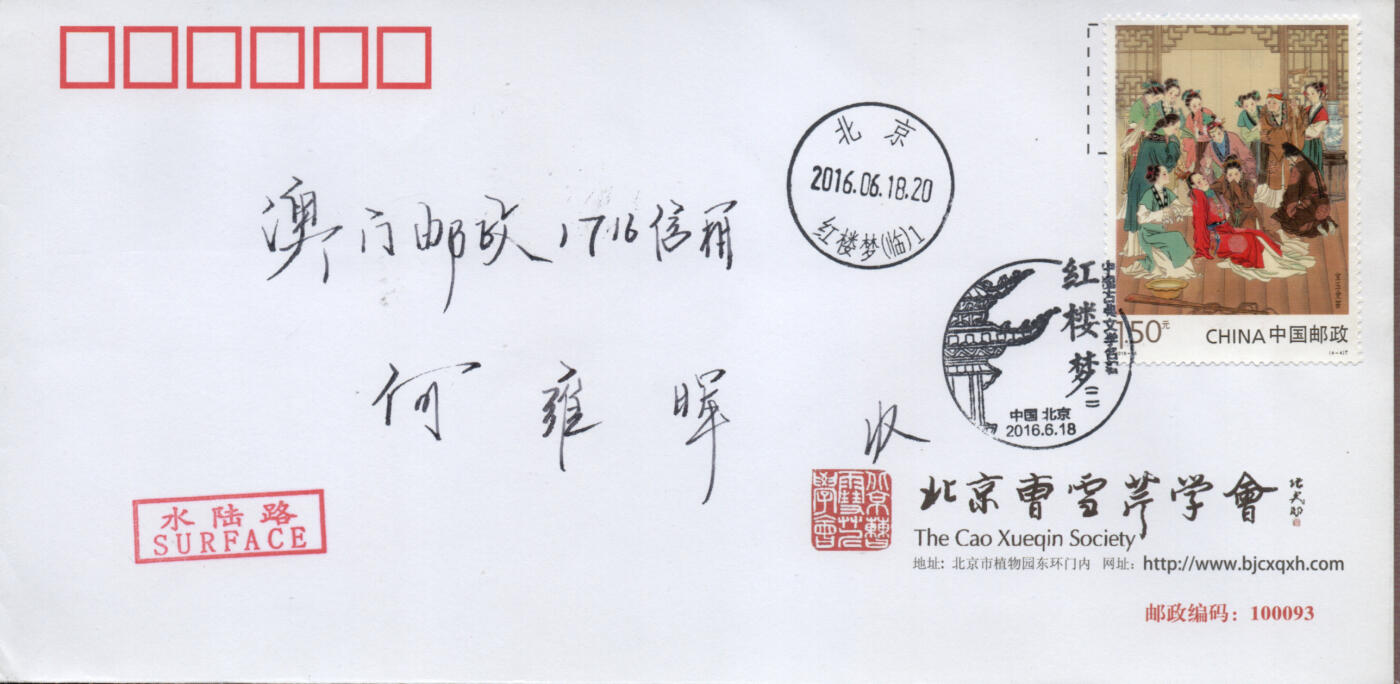 北京
2016.06.18.20
红楼梦(临)1
澳门邮政1716信箱
何雍晖 收
中国古典文学名著
红楼梦(二)
中国 北京
2016.6.18
1.50元
CHINA 中国邮政
(4-4)T
水陆路
SURFACE
北京曹雪芹学會
北京曹雪芹學會
The Cao Xueqin Society
地址: 北京市植物园东环门内 网址: http://www.bjcxqxh.com
邮政编码: 100093